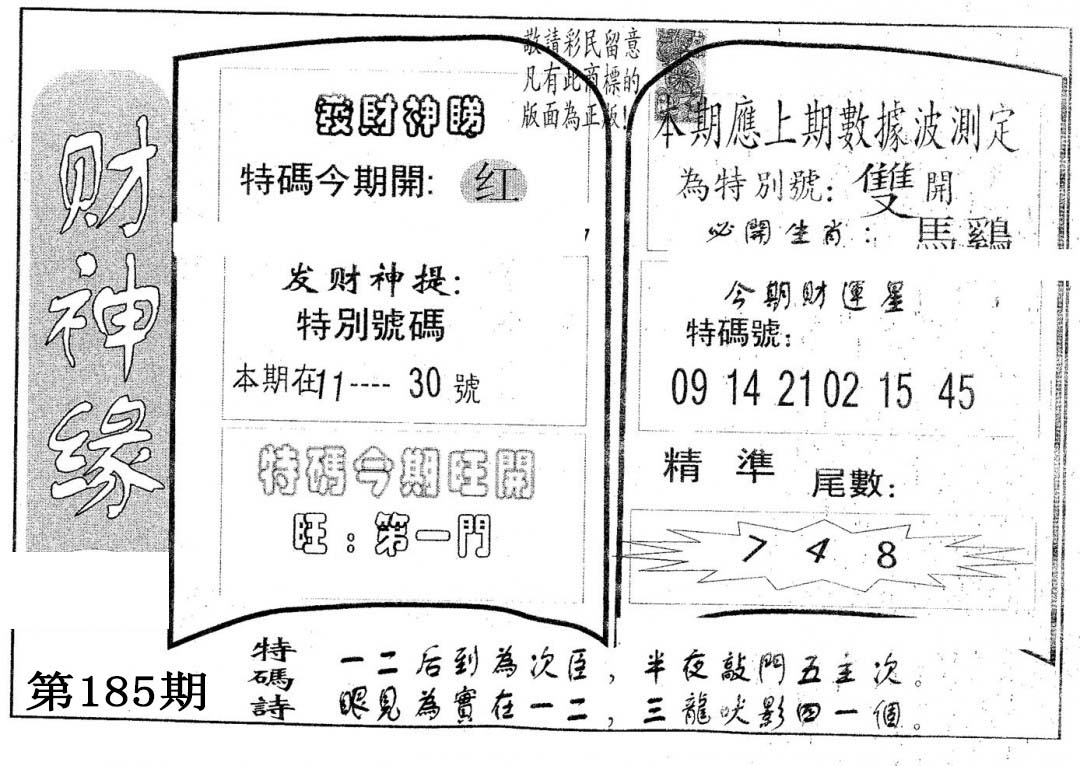 敬請彩民留意
凡有此商標的
版面為正版!
财神缘
發財神睇
特碼今期開:红
发财神提:
特別號碼
本期在11----30號
特碼今期旺開
旺:第一門
本期應上期數據波測定
為特別號:雙開
必開生肖:馬鷄
今期财運星
特碼號:
09 14 21 02 15 45
精準尾數:
7 4 8
第185期
特碼詩
一二后到為次臣,半夜敲門五主次。
眼見為實在一二,三龍吠影四一個。